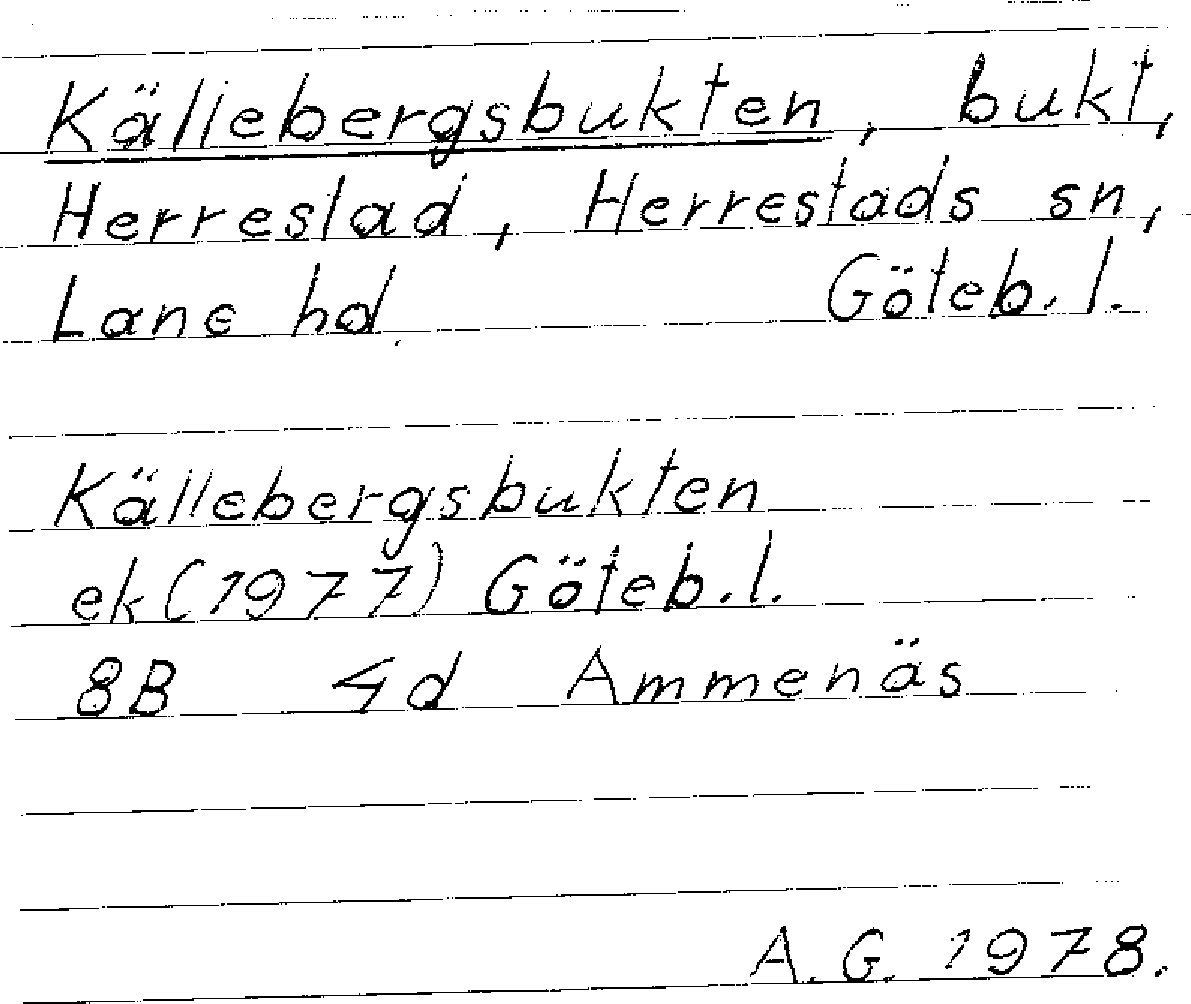 Källebergsbukten, bukt,
Herrestad, Herrestads sn,
Lane hd. Göteb. l.
Källebergsbukten
ek (1977) Göteb. l.
8B 4d Ammenäs
A. G. 1978.